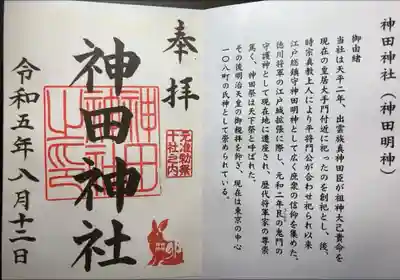 神田神社（神田明神）
御由緒
当社は天平二年、出雲族真神田臣が祖神大己貴命を
現在の皇居大手門付近に祀ったのを創祀とし、後、
時宗真教上人により平将門公が合わせ祀られ以来
江戸総鎮守神田明神として広く庶衆の信仰を集めた。
徳川将軍の江戸城拡張に際し、元和二年艮の鬼門の
守護神として現在地に遷座され、歴代将軍家の尊崇
篤く、神田祭は天下祭とよばれた。
その後明治天皇の御親拝を仰ぎ、現在は東京の中心
一〇八町の氏神として崇められている。
奉拝
元准勅祭
十社之内
神田神社
神田
神社
之印
令和五年八月十二日